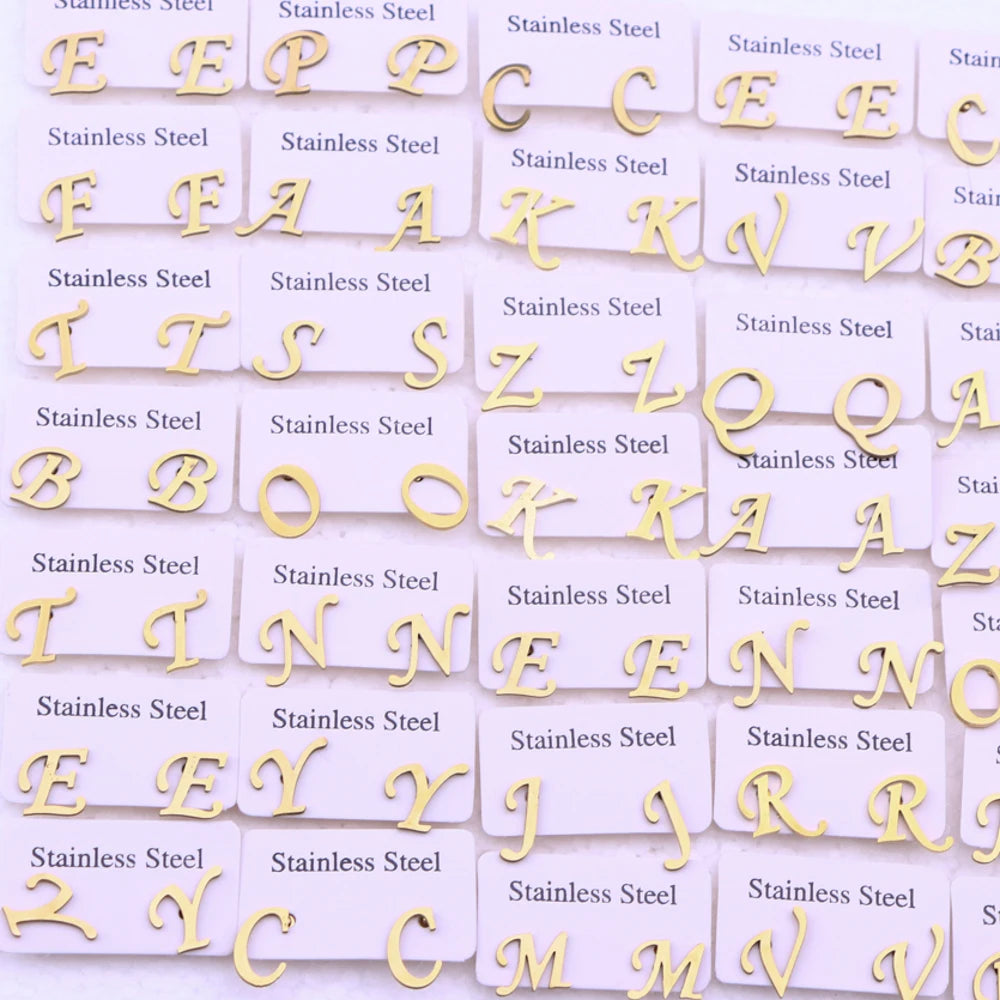 Stainless Steel Stainless Steel Stainless Steel Stainless Steel
E E P P C C E E C
Stainless Steel Stainless Steel Stainless Steel Stainless Steel
F F A A K K V V B
Stainless Steel Stainless Steel Stainless Steel Stainless Steel
T T S S Z Z Q Q A
Stainless Steel Stainless Steel Stainless Steel Stainless Steel
B B O O K K A A Z
Stainless Steel Stainless Steel Stainless Steel Stainless Steel
T T N N E E N N O
Stainless Steel Stainless Steel Stainless Steel Stainless Steel
E E Y Y J J R R
Stainless Steel Stainless Steel Stainless Steel Stainless Steel
Y Y C C M M V V